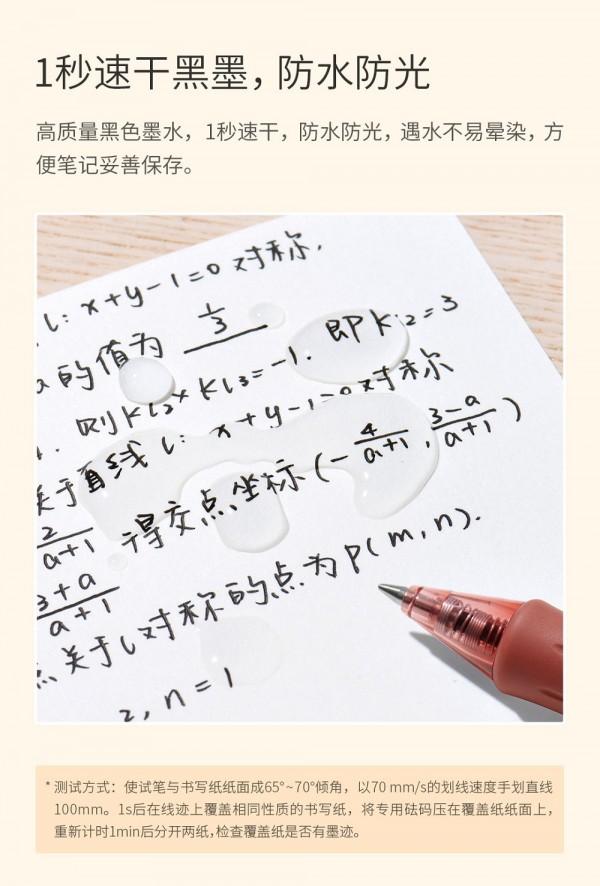 1秒速干黑墨，防水防光
高质量黑色墨水，1秒速干，防水防光，遇水不易晕染，方
便笔记妥善保存。
l: x+y-1=0 对称,
a 的值为 1/3 . 即 k l2 = 3
则 k l2 × k l3 = -1.
关于直线 l: x+y-1=0 对称
2/(a+1) 得交点坐标 (- 4/(a+1) , (3-a)/(a+1) )
(3+a)/(a+1)
点关于 l 对称的点为 P(m,n).
2, n=1
* 测试方式：使试笔与书写纸纸面成65°~70°倾角，以70 mm/s的划线速度手划直线
100mm。1s后在线迹上覆盖相同性质的书写纸，将专用砝码压在覆盖纸纸面上，
重新计时1min后分开两纸,检查覆盖纸是否有墨迹。